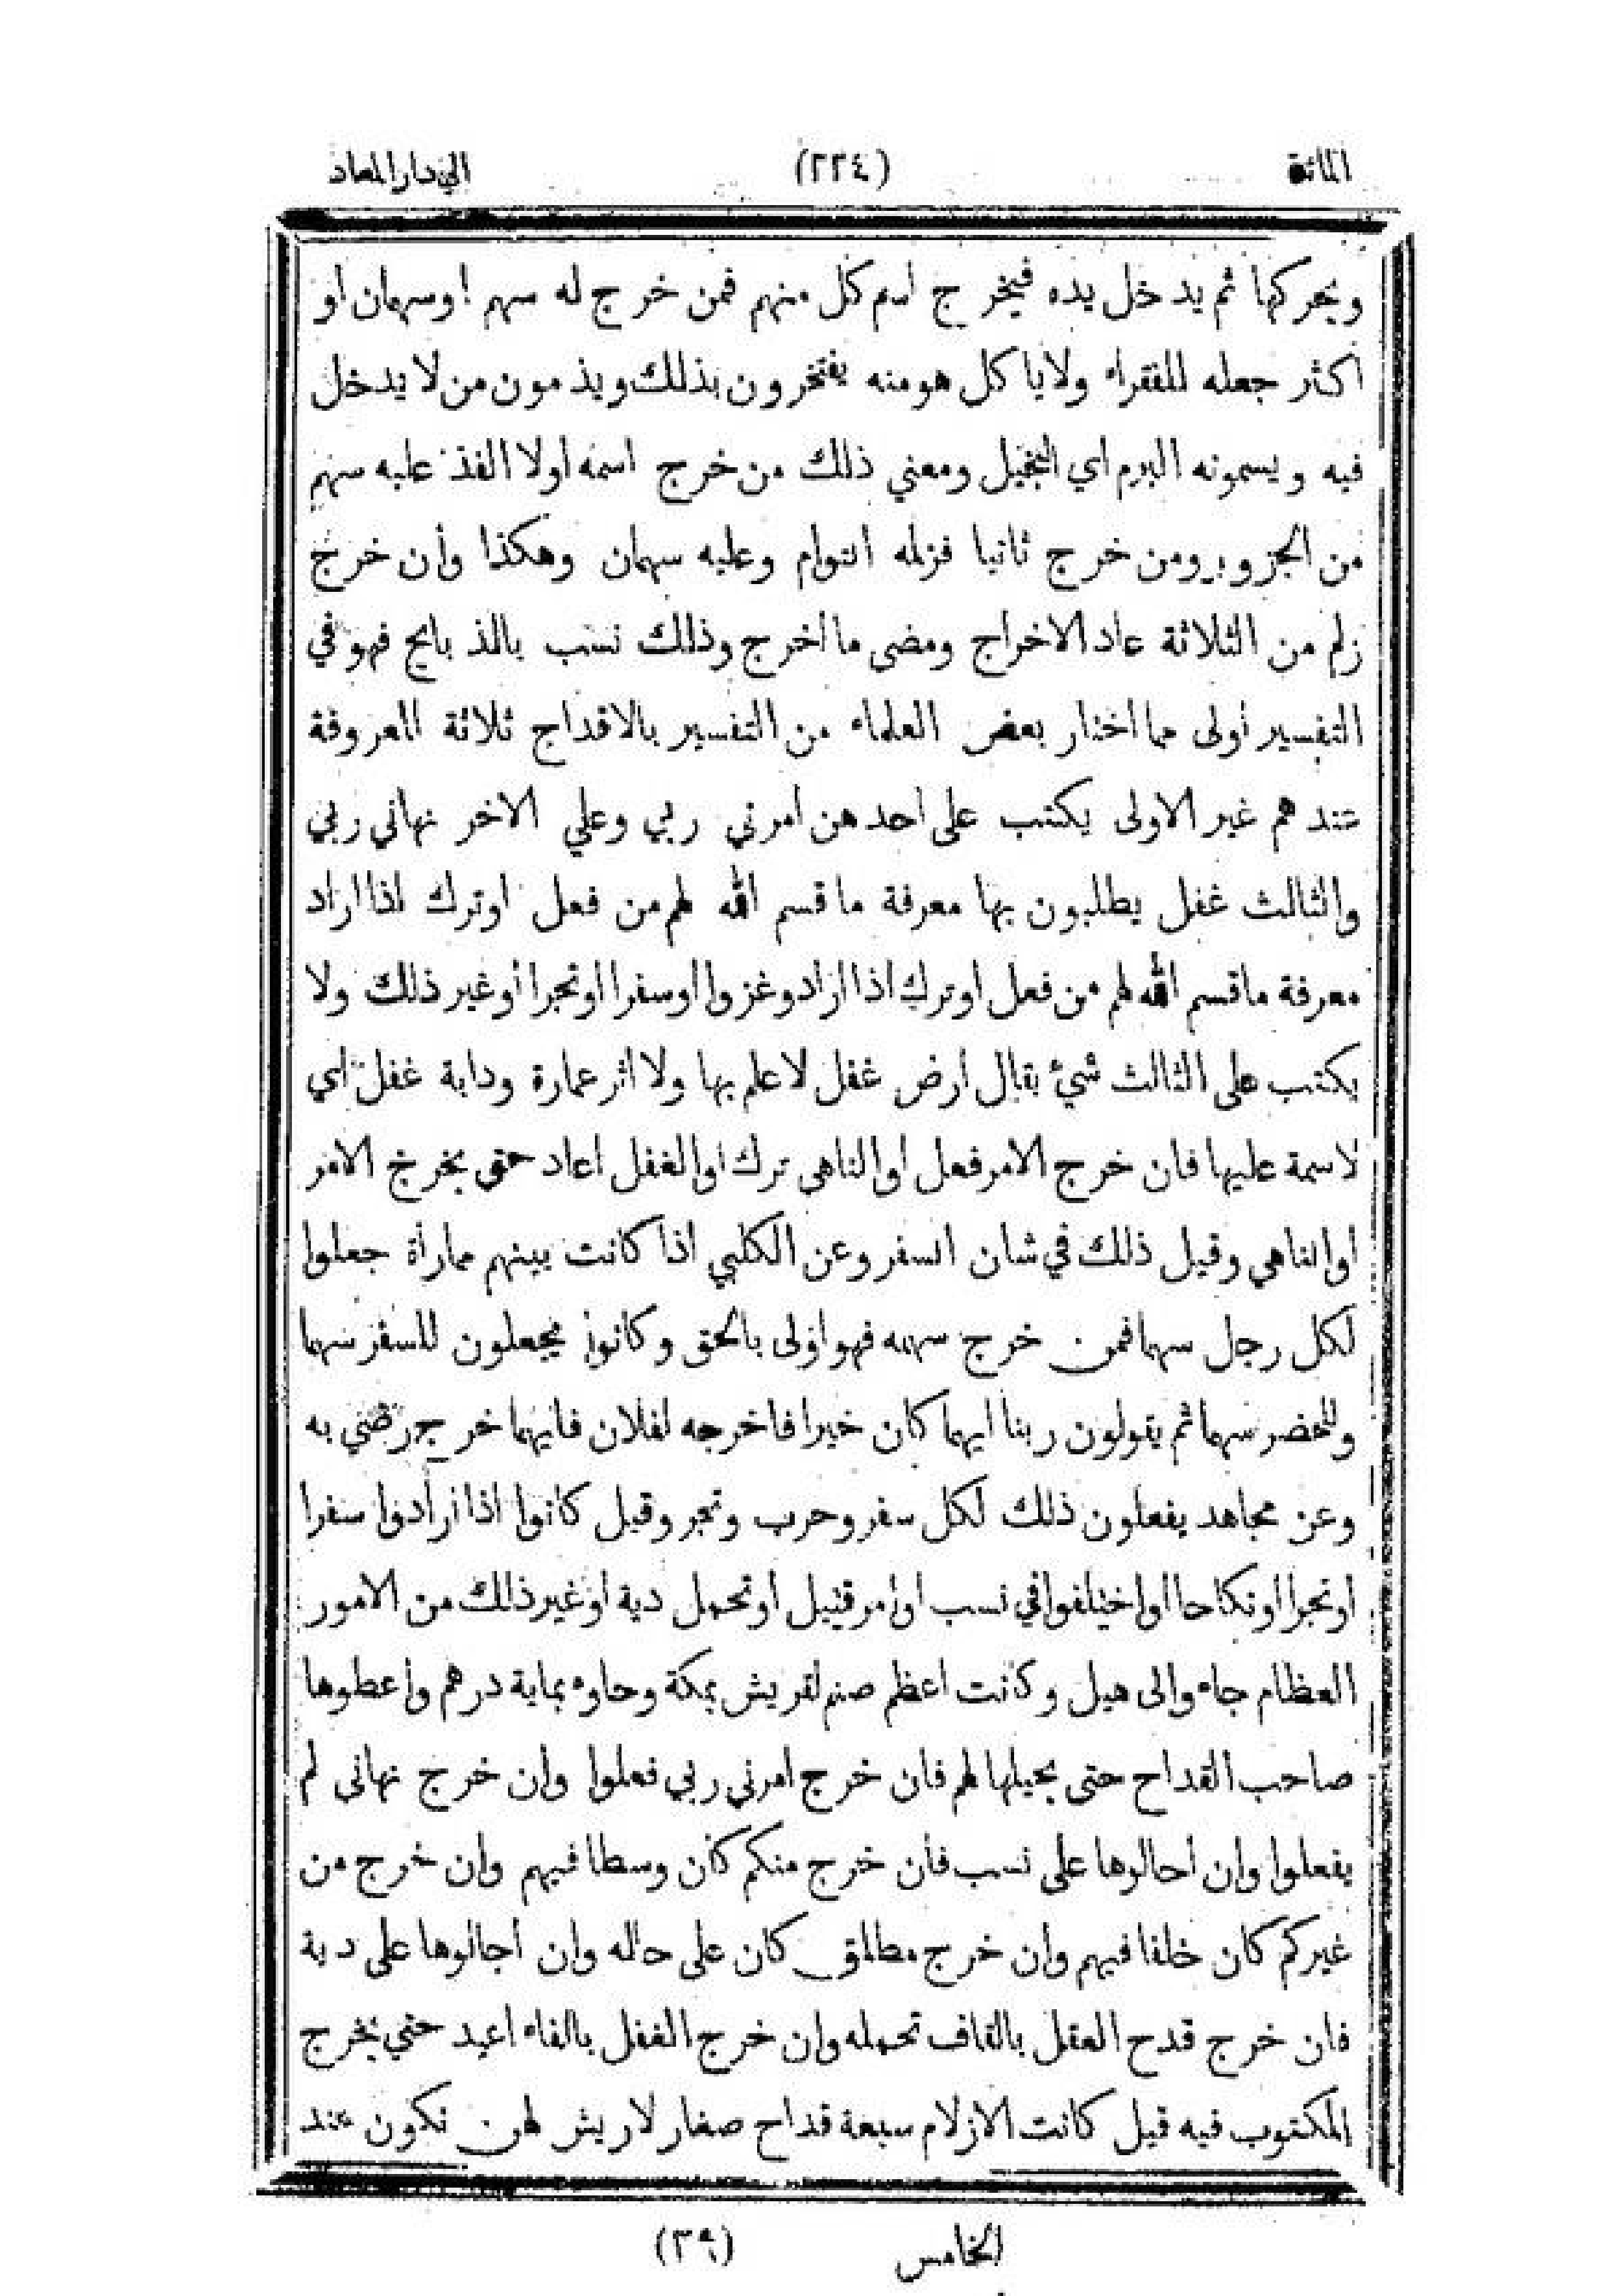 المائة (٢٢٤) الى دار المعاد
ويحركها ثم يدخل يده فيخرج اسم كل منهم فمن خرج له سهم او سهمان او
اكثر جعله للفقراء ولا يا كل هو منه يفتخرون بذلك ويذمون من لا يدخل
فيه ويسمونه البرم اي البخيل ومعني ذلك من خرج اسمه اولا الفذ عليه سهم
من الجزور ومن خرج ثانيا فزله التوام وعليه سهمان وهكذا وأن خرج
زلم من الثلاثة عاد الاخراج ومضى ما أخرج وذلك نسب بالذبايح فهو في
التفسير أولى مما اختار بعض العلماء من التفسير بالاقداح ثلاثة المعروفة
عندهم غير الاولى يكتب على احدهن امرني ربي وعلي الاخر نهاني ربي
والثالث غفل يطلبون بها معرفة ما قسم الله لهم من فعل او ترك اذا اراد
معرفة ما قسم الله لهم من فعل او ترك اذا ارادو غزوا او سفرا او تجرا أو غير ذلك ولا
يكتب على الثالث شئ يقال أرض غفل لا علم بها ولا اثر عمارة ودابة غفل اي
لاسمة عليها فان خرج الامر فعل او الناهى ترك او الغفل اعاد حتى يخرج الامر
او الناهي وقيل ذلك في شان السفر وعن الكلبي اذا كانت بينهم مماراة جعلوا
لكل رجل سهما فمن خرج سهمه فهو اولى بالحق وكانوا يجعلون للسفر سهما
وللحضر سهما ثم يقولون ربنا ايهما كان خيرا فاخرجه لفلان فايهما خرج رضي به
وعن مجاهد يفعلون ذلك لكل سفر وحرب وتجر وقيل كانوا اذا أرادوا سفرا
او تجرا او نكاحا او اختلفوا في نسب او امر قتيل أو تحمل دية او غير ذلك من الامور
العظام جاءوا الى هبل وكانت اعظم صنم لقريش بمكة وجاوء بماية درهم واعطوها
صاحب القداح حتى يجيلها لهم فان خرج امرني ربي فعلوا وان خرج نهانى لم
يفعلوا وان اجالوها على نسب فان خرج منكم كان وسطا فيهم وان خرج من
غيركم كان خلفا فيهم وان خرج مطلق كان على حاله وان اجالوها على دية
فان خرج قدح العقل بالقاف تحمله وان خرج الغفل بالفاء اعيد حتي يخرج
المكتوب فيه قيل كانت الازلام سبعة قداح صغار لاريش لهن تكون عند
الخامس (٣٩)